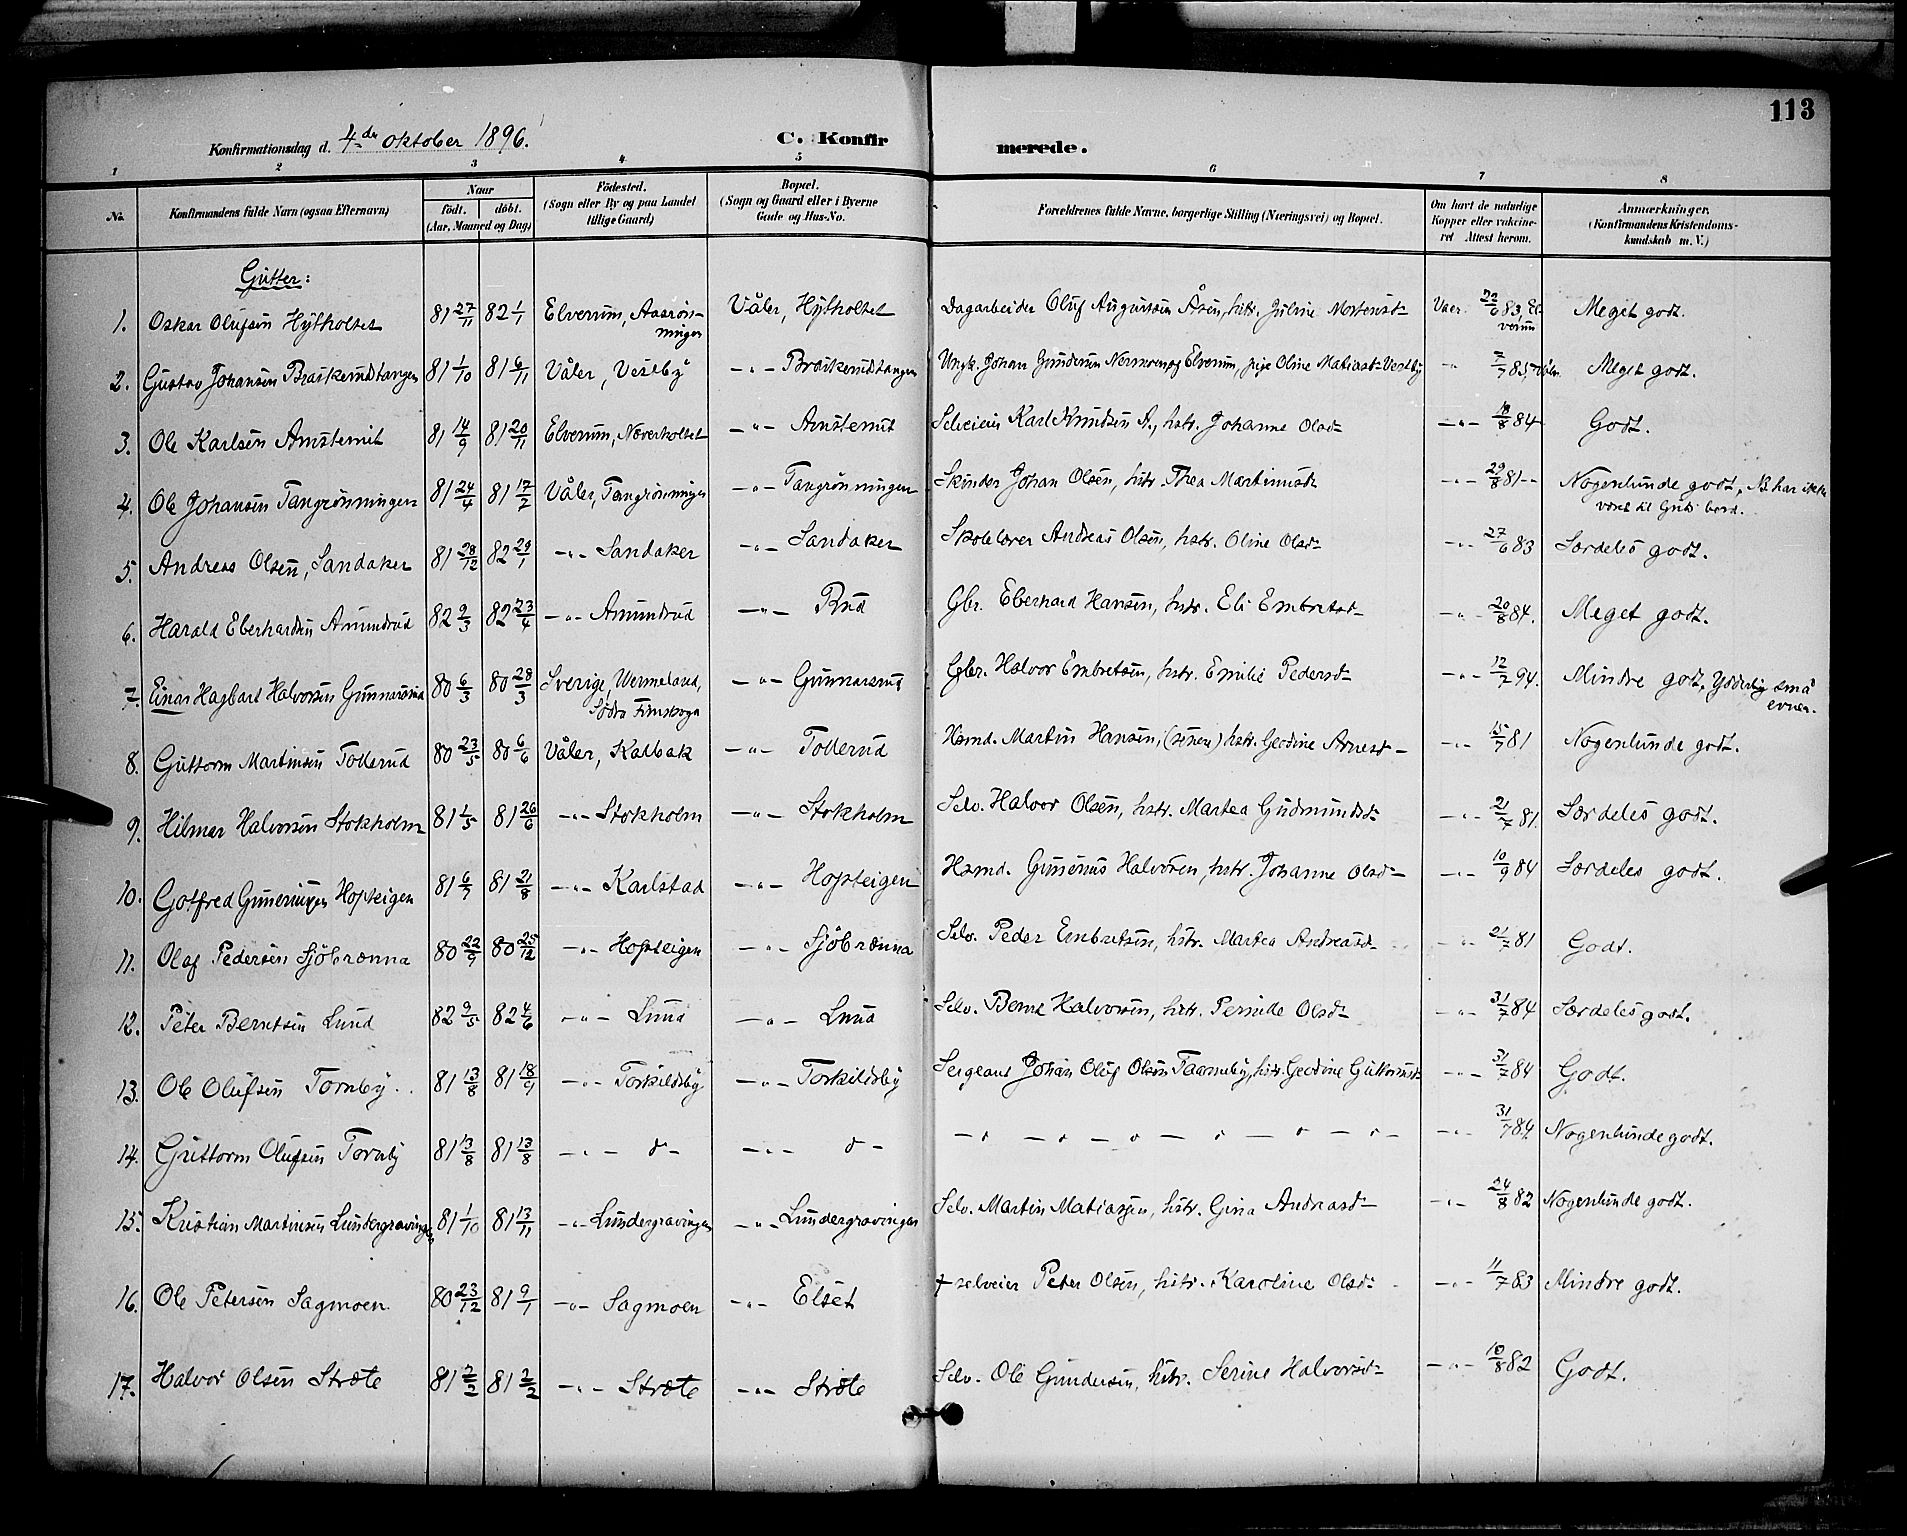 113
Konfirmationsdag d. 4de oktober 1896. C. Konfirmerede.
1 2 3 4 5 6 7 8
No. Konfirmandens fulde Navn (ogsaa Efternavn) Naar født. døbt. (Aar, Maaned og Dag) Fødested. (Sogn eller By og paa Landet tillige Gaard) Bopæl. (Sogn og Gaard eller i Byerne Gade og Hus-No. Forældrenes fulde Navne, borgerlige Stilling (Næringsvei) og Bopæl. Om havt de naturlige Kopper eller vakcineret Attest herom. Anmærkninger. (Konfirmandens Kristendomskundskab m. V.)
Gutter:
1. Oskar Olufsen Hylholtet 81 27/11 82 1/1 Elverum, Aasrønningen Våler, Hylholtet Dagarbeider Oluf Augustsen Åsen, hstr. Juline Mortensd- Vacc. 22/6 83, Elverum Meget godt.
2. Gustav Johansen Braskerudtangen 81 1/10 81 6/11 Våler, Veslby -"- Braskerudtangen Ungk. Johan Gundersen Elverum, pige Oline Matiasd- Vestby -"- 7/7 85, Våler Meget godt.
3. Ole Karlsen Arnstemit 81 14/9 81 20/11 Elverum, Næverholtet -"- Arnstemit Selveier Karl Knudsen A., hstr. Johanne Olsd- -"- 18/8 84 Godt.
4. Ole Johansen Tangrønningen 81 24/4 81 17/2 Våler, Tangrønningen -"- Tangrønningen Skinder Johan Olsen, hstr Thea Martinusd- -"- 29/8 81 -- Nogenlunde godt, NB. har ikke været til Guds bord.
5. Andreas Olsen, Sandaker 81 28/12 82 29/1 -"- Sandaker -"- Sandaker Skolelærer Andreas Olsen, hstr. Oline Olsd- -"- 27/6 83 Særdeles godt.
6. Harald Eberhardsen Amundrud 82 9/3 82 23/4 -"- Amundrud -"- Rud Gbr. Eberhard Hansen, hstr. Eli Embretsd- -"- 20/8 84. Meget godt.
7. Einar Hagbart Halvorsen Gunnarsrud 80 6/3 80 28/3 Sverige, Wermeland, Södra Finskoga -"- Gunnarsrud Gbr. Halvor Embretsen, hstr. Emilie Pedersd- -"- 12/7 94. Mindre godt, Yderlig små evner.
8. Guttorm Martinsen Tollerud 80 23/5 80 6/6 Våler, Kalbak -"- Tollerud Hsmd. Martin Hansen, (senere) hstr. Geodine Arnesd- -"- 15/7 81 Nogenlunde godt.
9. Hilmar Halvorsen Stokholm 81 1/5 81 26/6 -"- Stokholm -"- Stokholm Selv. Halvor Olsen, hstr. Martea Gudmundsd- -"- 21/7 81. Særdeles godt.
10. Gotfred Gunerius. Hopteigen 81 6/7 81 21/8 -"- Karlstad -"- Hopteigen Hsmd. Gunerius Halvorsen, hstr. Johanne Olsd- -"- 10/9 84 Særdeles godt.
11. Olaf Pedersen Sjöbrænna 80 22/9 80 25/12 -"- Hopteigen -"- Sjöbrænna Selv. Peder Embretsen, hstr. Martea Andreasd- -"- 21/7 81 Godt.
12. Peter Berntsen Lund 82 9/5 82 4/6 -"- Lund -"- Lund Selv. Bernt Halvorsen, hstr. Pernille Olsd- -"- 31/7 84 Særdeles godt.
13. Ole Olufsen Tornby. 81 13/8 81 18/9 -"- Torkildsby -"- Torkildsby Sergeant Johan Oluf Olsen Taarneby, hstr. Geodine Guttormsd- -"- 31/7 84 Godt.
14. Guttorm Olufsen Tornby 81 13/8 81 13/8 -"- o - -"- o - - o - o - o - o - o - o - -"- 31/7 84. Nogenlunde godt.
15. Kristian Martinsen Lundergravingen 81 1/10 81 13/11 -"- Lundergravingen -"- Lundergravingen Selv. Martin Matiasen, hstr. Gina Andreasd- -"- 24/8 82 Nogenlunde godt.
16. Ole Petersen Sagmoen 80 23/12 81 9/1 -"- Sagmoen -"- Elset + selveier Peter Olsen, hstr. Karoline Olsd- -"- 11/7 83 Mindre godt.
17. Halvor Olsen Stræte 81 2/2 81 2/2 -"- Stræte -"- Stræte Selv. Ole Gundersen, hstr. Serine Halvorsd- -"- 10/8 82 Godt.